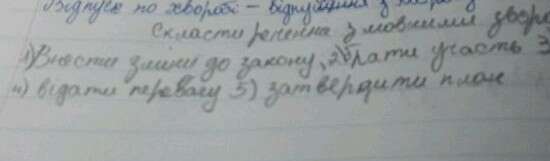 Відпуск по хворобі – відпустка з
Скласти речення з мовними зворо
1) Внести зміни до закону, 2) брати участь 3
4) відати перевагу 5) затвердити план